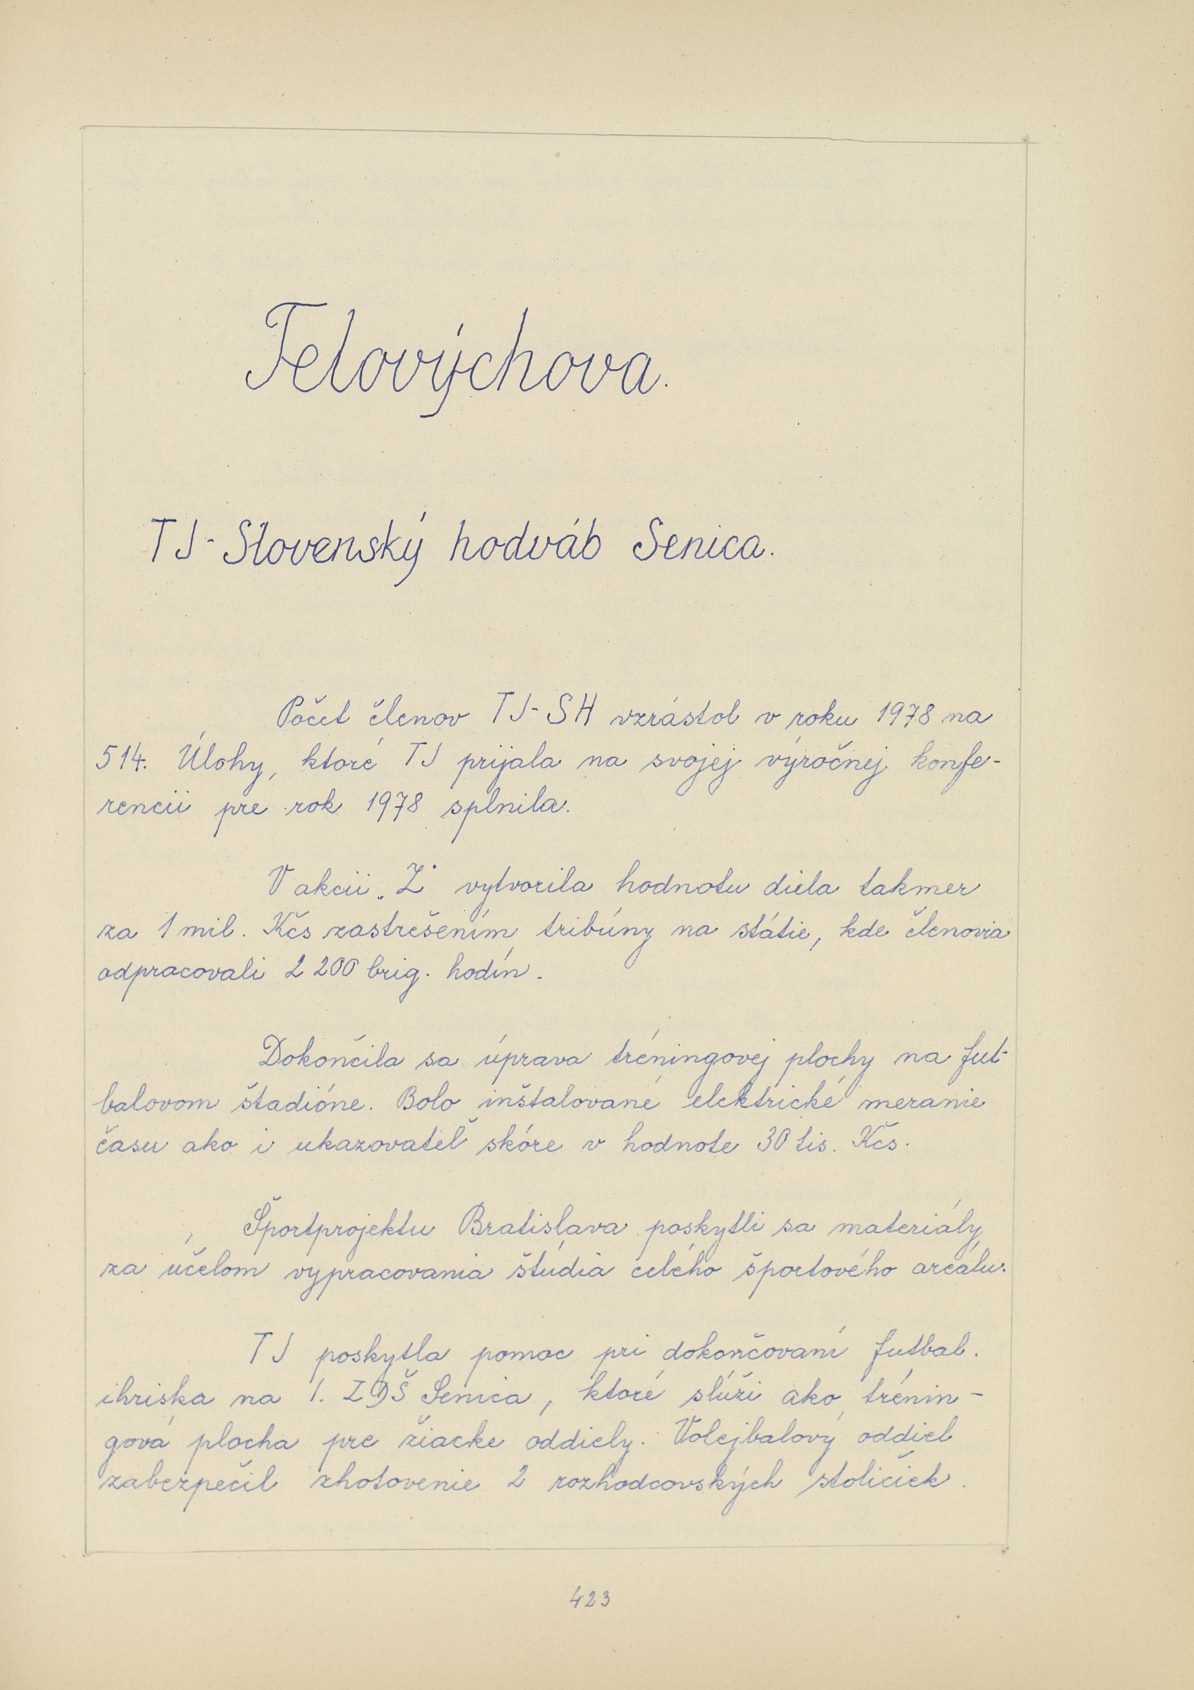 Telovýchova.
TJ-Slovenský hodváb Senica.
Počet členov TJ-SH vzrástol v roku 1978 na
514. Úlohy, ktoré TJ prijala na svojej výročnej konfe-
rencii pre rok 1978 splnila.
V akcii „Z" vytvorila hodnotu diela takmer
za 1 mil. Kčs zastrešením tribúny na státie, kde členovia
odpracovali 2 200 brig. hodín.
Dokončila sa úprava tréningovej plochy na fut-
balovom štadióne. Bolo inštalované elektrické meranie
času ako i ukazovateľ skóre v hodnote 30 tis. Kčs.
Športprojektu Bratislava poskytli sa materiály
za účelom vypracovania štúdia celého športového areálu.
TJ poskytla pomoc pri dokončovaní futbal.
ihriska na 1. ZDŠ Senica, ktoré slúži ako trénin-
gová plocha pre žiacke oddiely. Volejbalový oddiel
zabezpečil zhotovenie 2 rozhodcovských stoličiek.
423